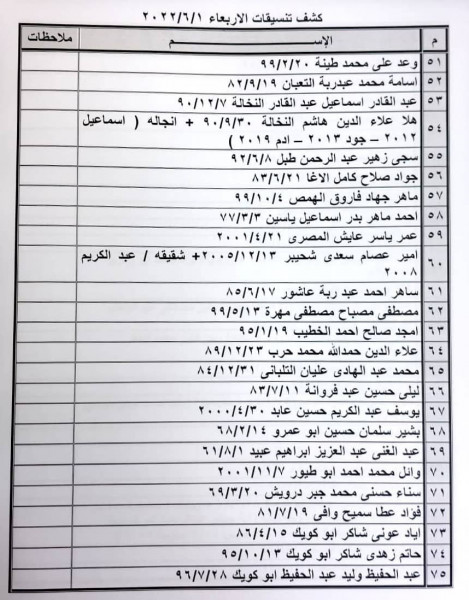 كشف تنسيقات الاربعاء ٢٠٢٢/٦/١
م الإســـم ملاحظات
٥١ وعد على محمد طينة ٩٩/٢/٢٠
٥٢ اسامة محمد عبدربة التعبان ٨٢/٩/١٩
٥٣ عبد القادر اسماعيل عبد القادر النخالة ٩٠/١٢/٧
٥٤ هلا علاء الدين هاشم النخالة ٩٠/٩/٣٠ + انجاله ( اسماعيل
٢٠١٢ – جود ٢٠١٣ – ادم ٢٠١٩ )
٥٥ سجى زهير عبد الرحمن طبل ٩٢/٦/٨
٥٦ جواد صلاح كامل الاغا ٨٣/٦/٢١
٥٧ ماهر جهاد فاروق الهمص ٩٩/١٠/٤
٥٨ احمد ماهر بدر اسماعيل ياسين ٧٧/٣/٣
٥٩ عمر ياسر عايش المصرى ٢٠٠١/٤/٢١
٦٠ امير عصام سعدى شحيبر ٢٠٠٥/١٢/١٣+ شقيقه / عبد الكريم
٢٠٠٨
٦١ ساهر احمد عبد ربة عاشور ٨٥/٦/١٧
٦٢ مصطفى مصباح مصطفى مهرة ٩٩/٥/١٣
٦٣ امجد صالح احمد الخطيب ٩٥/١/١٩
٦٤ علاء الدين حمدالله محمد حرب ٨٩/١٢/٢٣
٦٥ محمد عبد الهادى عليان التلبانى ٨٤/١٢/٣١
٦٦ ليلى حسين عبد فروانة ٨٣/٧/١١
٦٧ يوسف عبد الكريم حسين عابد ٢٠٠٠/٤/٣٠
٦٨ بشير سلمان حسين ابو عمرو ٦٨/٢/١٤
٦٩ عبد الغنى عبد العزيز ابراهيم عبيد ٦١/٨/١
٧٠ وائل محمد احمد ابو طيور ٢٠٠١/١١/٧
٧١ سناء حسنى محمد جبر درويش ٦٩/٣/٢٠
٧٢ فؤاد عطا سميح وافى ٨١/٧/١٩
٧٣ اياد عونى شاكر ابو كويك ٨٦/٤/١٥
٧٤ حاتم زهدى شاكر ابو كويك ٩٥/١٠/١٣
٧٥ عبد الحفيظ وليد عبد الحفيظ ابو كويك ٩٦/٧/٢٨